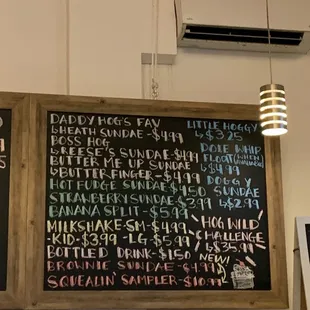 DADDY HOG'S FAV
↳HEATH SUNDAE-$4.99
BOSS HOG
↳REESE'S SUNDAE-$4.99
BUTTER ME UP SUNDAE
↳BUTTERFINGER-$4.99
HOT FUDGE SUNDAE-$4.50
STRAWBERRY SUNDAE-$3.99
BANANA SPLIT-$5.99
MILKSHAKE-SM-$4.99
-KID-$3.99-LG-$5.99
BOTTLED DRINK-$1.50
BROWNIE SUNDAE-$4.99
SQUEALIN' SAMPLER-$10.99
LITTLE HOGGY
↳$3.25
DOLE WHIP
FLOAT (WHEN AVAILABLE)
↳$4.99
DOGGY
SUNDAE
↳$2.99
HOG WILD
CHALLENGE
↳$35.99
NEW!